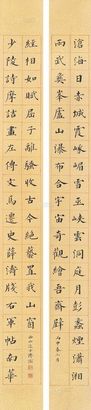 滄海日赤城霞峨嵋雪巫峽雲洞庭月彭蠡煙瀟湘
雨武夷峯廬山瀑布合宇宙奇觀繪吾齋壁
少陵詩摩詰畫左傳文馬遷史薛濤箋右軍帖南華
經相如賦屈子離騷收古今絕藝置我山窗